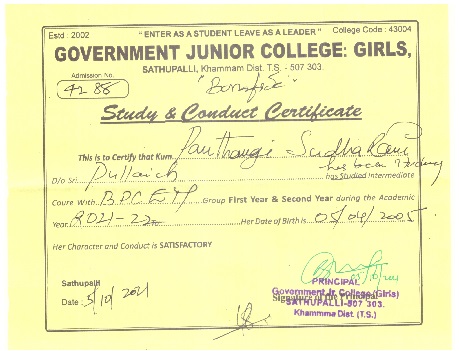 Estd : 2002 " ENTER AS A STUDENT LEAVE AS A LEADER " College Code : 43004
GOVERNMENT JUNIOR COLLEGE: GIRLS,
SATHUPALLI, Khammam Dist. T.S. - 507 303.
Admission No.
4288
"Bonafide"
Study & Conduct Certificate
This is to Certify that Kum Panthangi Sudha Rani
has been studying
D/o Sri Pullaiah has Studied Intermediate
Coure With BPC EM Group First Year & Second Year during the Academic
Year 2021-22 Her Date of Birth is 05/04/2005
Her Character and Conduct is SATISFACTORY
Sathupalli
Date : 5/10/2021
PRINCIPAL
Government Jr. College (Girls)
Signature of the Principal
SATHUPALLI-507 303.
Khammma Dist. (T.S.)